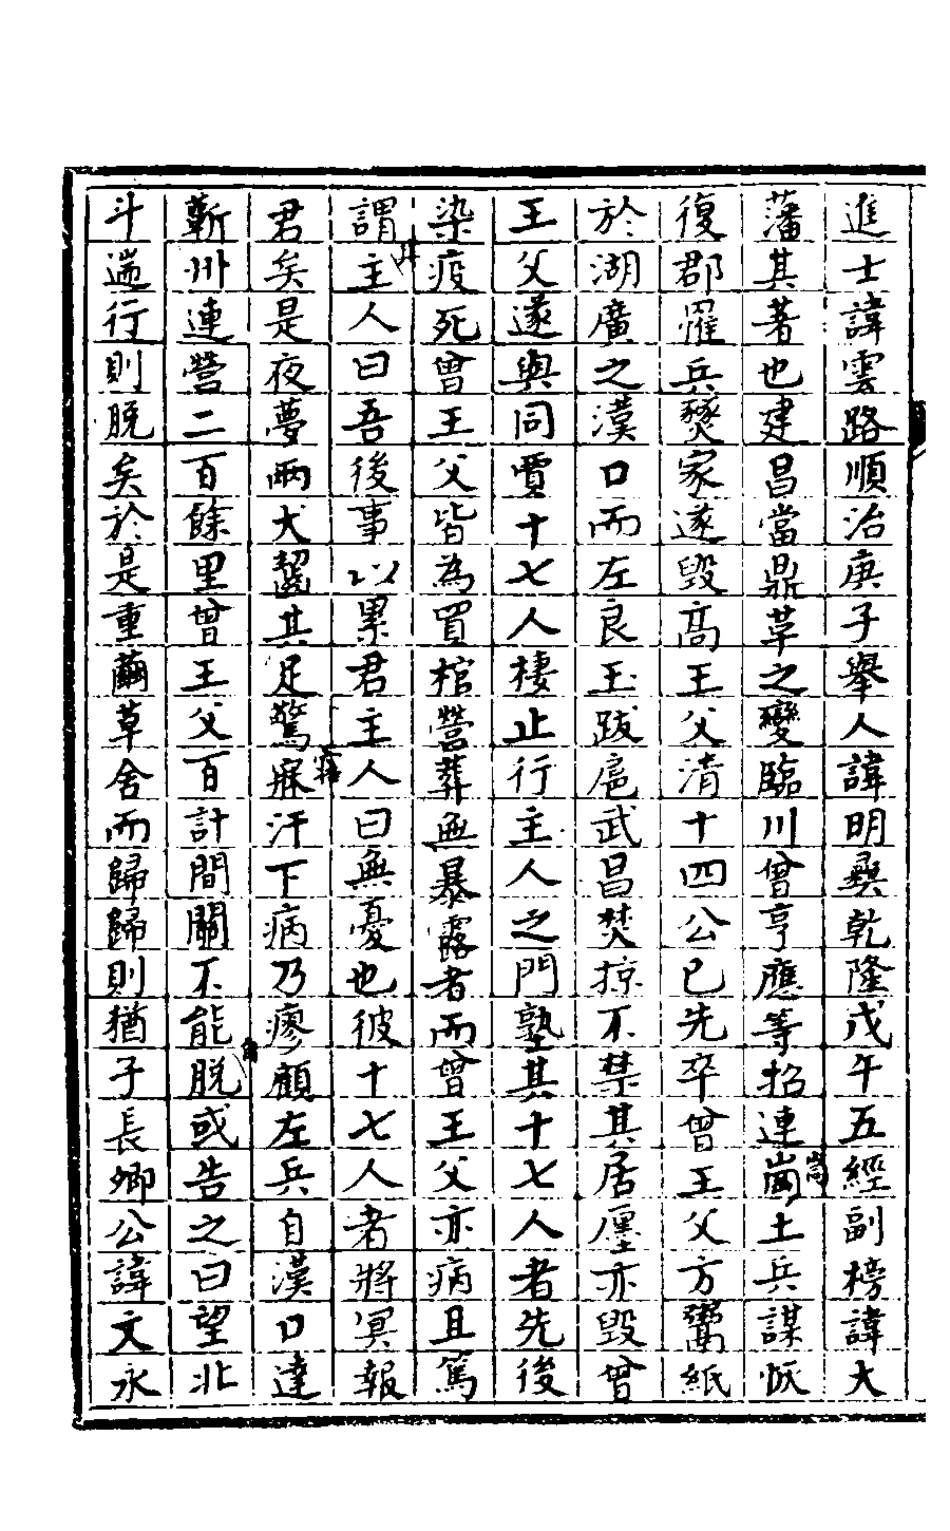 進士諱雲路順治庚子舉人諱明彝乾隆戊午五經副榜諱大
藩其著也建昌當鼎革之變臨川曾亨應等招連峝土兵謀恢
復郡罹兵燹家遂毀高王父清十四公已先卒曾王父方鬻紙
於湖廣之漢口而左良玉跋扈武昌焚掠不禁其居廛亦毀曾
王父遂與同賈十七人棲止行主人之門塾其十七人者先後
染疫死曾王父皆為買棺營葬無暴露者而曾王父亦病且篤
謂主人曰吾後事以累君主人曰無憂也彼十七人者將冥報
君矣是夜夢兩犬齧其足驚寤汗下病乃瘳顧左兵自漢口達
蘄州連營二百餘里曾王父百計間關不能脫或告之曰望北
斗遄行則脫矣於是重繭草舍而歸歸則猶子長卿公諱文永